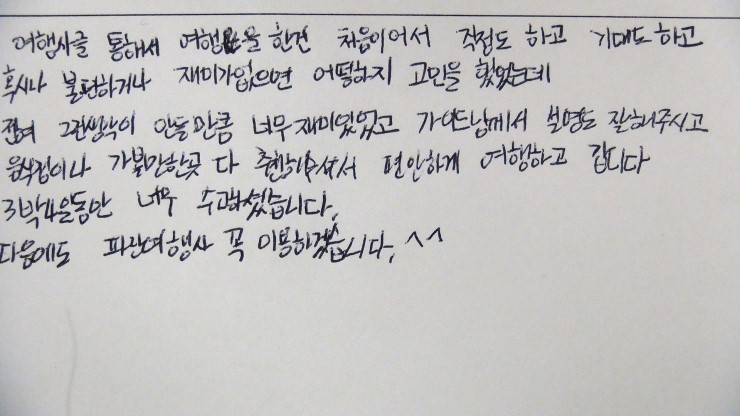 여행사를 통해서 여행을 한건 처음이어서 걱정도 하고 기대도 하고
혹시나 불편하거나 재미가없으면 어떨하지 고민을 했었는데
전혀 그런생각이 안들만큼 너무 재미있었고 가이드님께서 설명도 잘해주시고
음식점이나 가볼만한곳 다 추천해주셔서 편안하게 여행하고 갑니다
3박4일동안 너무 수고하셨습니다.
다음에도 파란여행사 꼭 이용하겠습니다. ^^